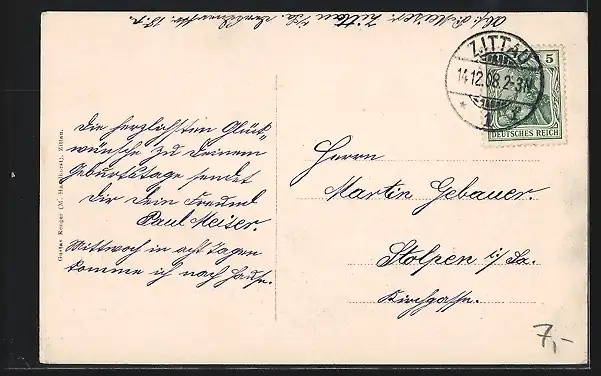 Abs. P. Meiser. Zittau i/Sa.
ZITTAU
14.12.08.2-3N.
* 1 r
5
DEUTSCHES REICH
Die herzlichsten Glück-
wünsche zu Deinem
Geburtstage sendet
Dir Dein Freund
Paul Meiser.
Mittwoch in acht Tagen
komme ich nach Hause.
Herrn
Martin Gebauer.
Stolpen i/Sa.
Kirchgasse.
Gustav Renger (M. Haselhorst), Zittau.
7,-